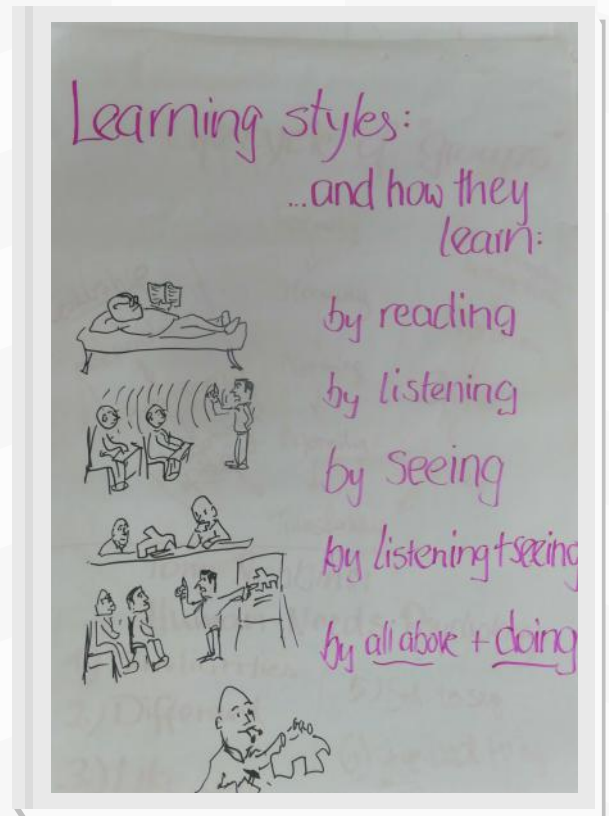 Learning styles:
...and how they
learn:
by reading
by listening
by seeing
by listening + seeing
by all above + doing